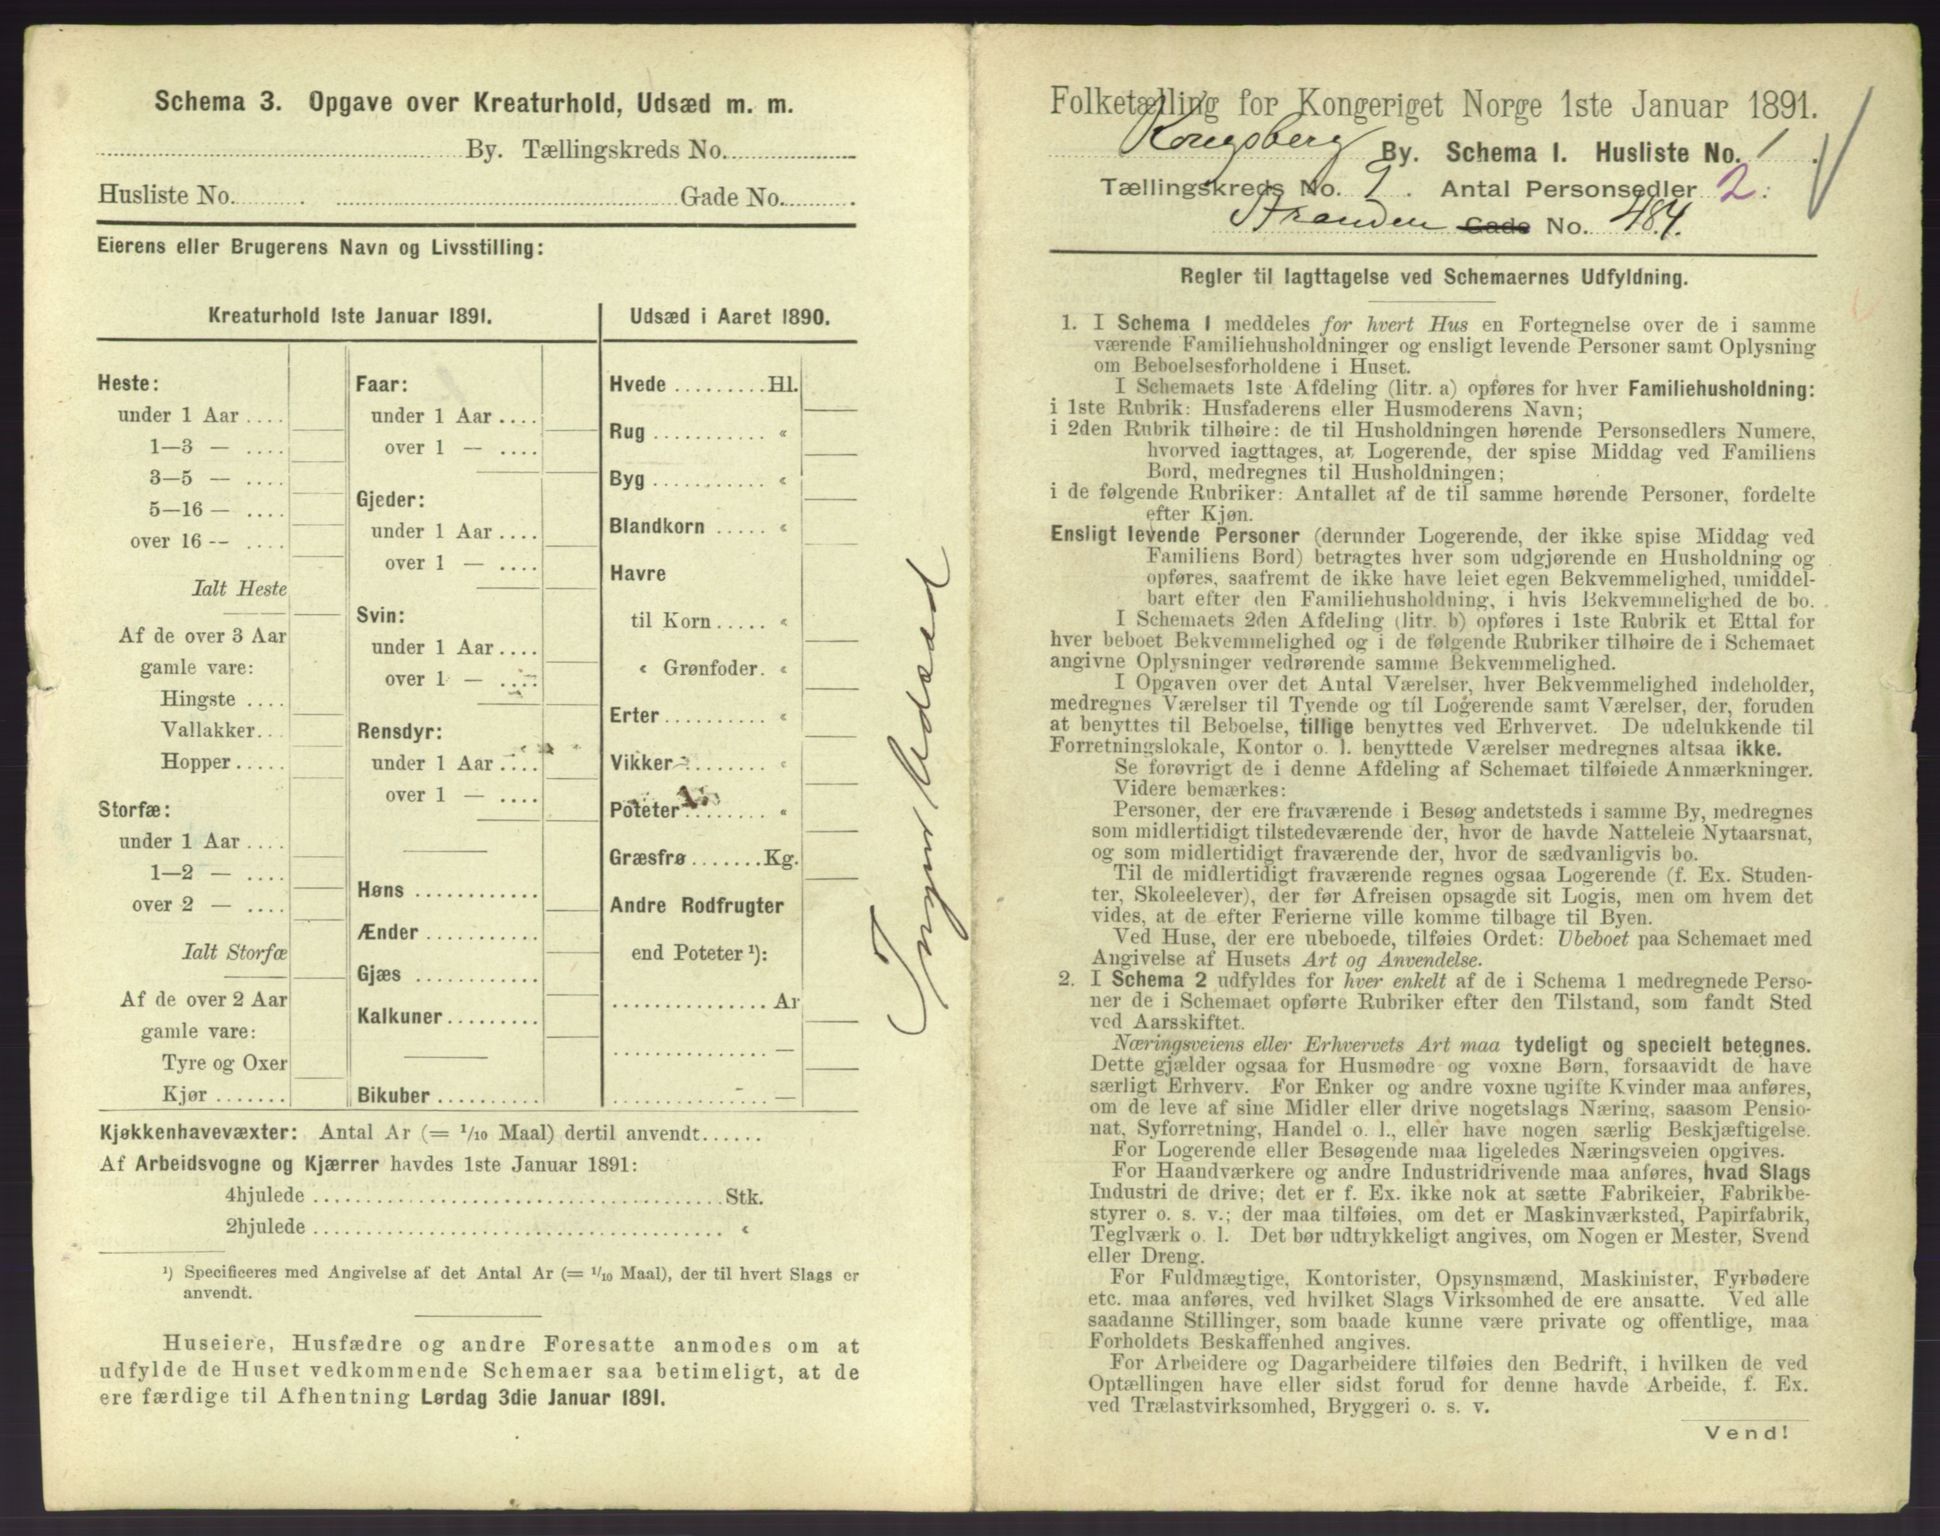 Schema 3. Opgave over Kreaturhold, Udsæd m. m.
By. Tællingskreds No.
Husliste No. Gade No.
Eierens eller Brugerens Navn og Livsstilling:
Kreaturhold 1ste Januar 1891.
Heste:
under 1 Aar
1—3 —
3—5 —
5—16 —
over 16 --
Ialt Heste
Af de over 3 Aar
gamle vare:
Hingste
Vallakker
Hopper
Storfæ:
under 1 Aar
1—2 —
over 2 —
Ialt Storfæ
Af de over 2 Aar
gamle vare:
Tyre og Oxer
Kjør
Faar:
under 1 Aar
over 1 —
Gjeder:
under 1 Aar
over 1 —
Svin:
under 1 Aar
over 1 —
Rensdyr:
under 1 Aar
over 1 —
Høns
Ænder
Gjæs
Kalkuner
Bikuber
Udsæd i Aaret 1890.
Hvede Hl.
Rug «
Byg «
Blandkorn «
Havre
til Korn «
« Grønfoder. «
Erter «
Vikker «
Poteter «
Græsfrø Kg.
Andre Rodfrugter
end Poteter ¹):
Ar
—
—
Kjøkkenhavevæxter: Antal Ar (= 1/10 Maal) dertil anvendt
Af Arbeidsvogne og Kjærrer havdes 1ste Januar 1891:
4hjulede Stk.
2hjulede «
¹) Specificeres med Angivelse af det Antal Ar (= 1/10 Maal), der til hvert Slags er
anvendt.
Huseiere, Husfædre og andre Foresatte anmodes om at
udfylde de Huset vedkommende Schemaer saa betimeligt, at de
ere færdige til Afhentning Lørdag 3die Januar 1891.
Ingen Udsæd
Folketælling for Kongeriget Norge 1ste Januar 1891.
Kongsberg By. Schema I. Husliste No. 1.
Tællingskreds No. 9. Antal Personsedler 2.
Stranden Gade No. 484.
Regler til Iagttagelse ved Schemaernes Udfyldning.
1. I Schema 1 meddeles for hvert Hus en Fortegnelse over de i samme
værende Familiehusholdninger og ensligt levende Personer samt Oplysning
om Beboelsesforholdene i Huset.
I Schemaets 1ste Afdeling (litr. a) opføres for hver Familiehusholdning:
i 1ste Rubrik: Husfaderens eller Husmoderens Navn;
i 2den Rubrik tilhøire: de til Husholdningen hørende Personsedlers Numere,
hvorved iagttages, at Logerende, der spise Middag ved Familiens
Bord, medregnes til Husholdningen;
i de følgende Rubriker: Antallet af de til samme hørende Personer, fordelte
efter Kjøn.
Ensligt levende Personer (derunder Logerende, der ikke spise Middag ved
Familiens Bord) betragtes hver som udgjørende en Husholdning og
opføres, saafremt de ikke have leiet egen Bekvemmelighed, umiddel-
bart efter den Familiehusholdning, i hvis Bekvemmelighed de bo.
I Schemaets 2den Afdeling (litr. b) opføres i 1ste Rubrik et Ettal for
hver beboet Bekvemmelighed og i de følgende Rubriker tilhøire de i Schemaet
angivne Oplysninger vedrørende samme Bekvemmelighed.
I Opgaven over det Antal Værelser, hver Bekvemmelighed indeholder,
medregnes Værelser til Tyende og til Logerende samt Værelser, der, foruden
at benyttes til Beboelse, tillige benyttes ved Erhvervet. De udelukkende til
Forretningslokale, Kontor o. l. benyttede Værelser medregnes altsaa ikke.
Se forøvrigt de i denne Afdeling af Schemaet tilføiede Anmærkninger.
Videre bemærkes:
Personer, der ere fraværende i Besøg andetsteds i samme By, medregnes
som midlertidigt tilstedeværende der, hvor de havde Natteleie Nytaarsnat,
og som midlertidigt fraværende der, hvor de sædvanligvis bo.
Til de midlertidigt fraværende regnes ogsaa Logerende (f. Ex. Studen-
ter, Skoleelever), der før Afreisen opsagde sit Logis, men om hvem det
vides, at de efter Ferierne ville komme tilbage til Byen.
Ved Huse, der ere ubeboede, tilføies Ordet: Ubeboet paa Schemaet med
Angivelse af Husets Art og Anvendelse.
2. I Schema 2 udfyldes for hver enkelt af de i Schema 1 medregnede Perso-
ner de i Schemaet opførte Rubriker efter den Tilstand, som fandt Sted
ved Aarsskiftet.
Næringsveiens eller Erhvervets Art maa tydeligt og specielt betegnes.
Dette gjælder ogsaa for Husmødre og voxne Børn, forsaavidt de have
særligt Erhverv. For Enker og andre voxne ugifte Kvinder maa anføres,
om de leve af sine Midler eller drive nogetslags Næring, saasom Pensio-
nat, Syforretning, Handel o. l., eller have nogen særlig Beskjæftigelse.
For Logerende eller Besøgende maa ligeledes Næringsveien opgives.
For Haandværkere og andre Industridrivende maa anføres, hvad Slags
Industri de drive; det er f. Ex. ikke nok at sætte Fabrikeier, Fabrikbe-
styrer o. s. v.; der maa tilføies, om det er Maskinværksted, Papirfabrik,
Teglværk o. l. Det bør udtrykkeligt angives, om Nogen er Mester, Svend
eller Dreng.
For Fuldmægtige, Kontorister, Opsynsmænd, Maskinister, Fyrbødere
etc. maa anføres, ved hvilket Slags Virksomhed de ere ansatte. Ved alle
saadanne Stillinger, som baade kunne være private og offentlige, maa
Forholdets Beskaffenhed angives.
For Arbeidere og Dagarbeidere tilføies den Bedrift, i hvilken de ved
Optællingen have eller sidst forud for denne havde Arbeide, f. Ex.
ved Trælastvirksomhed, Bryggeri o. s. v.
Vend!